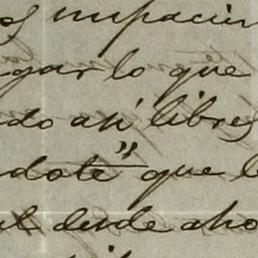 os impacien
gar lo que
do así libres
dote" que l
al desde aho